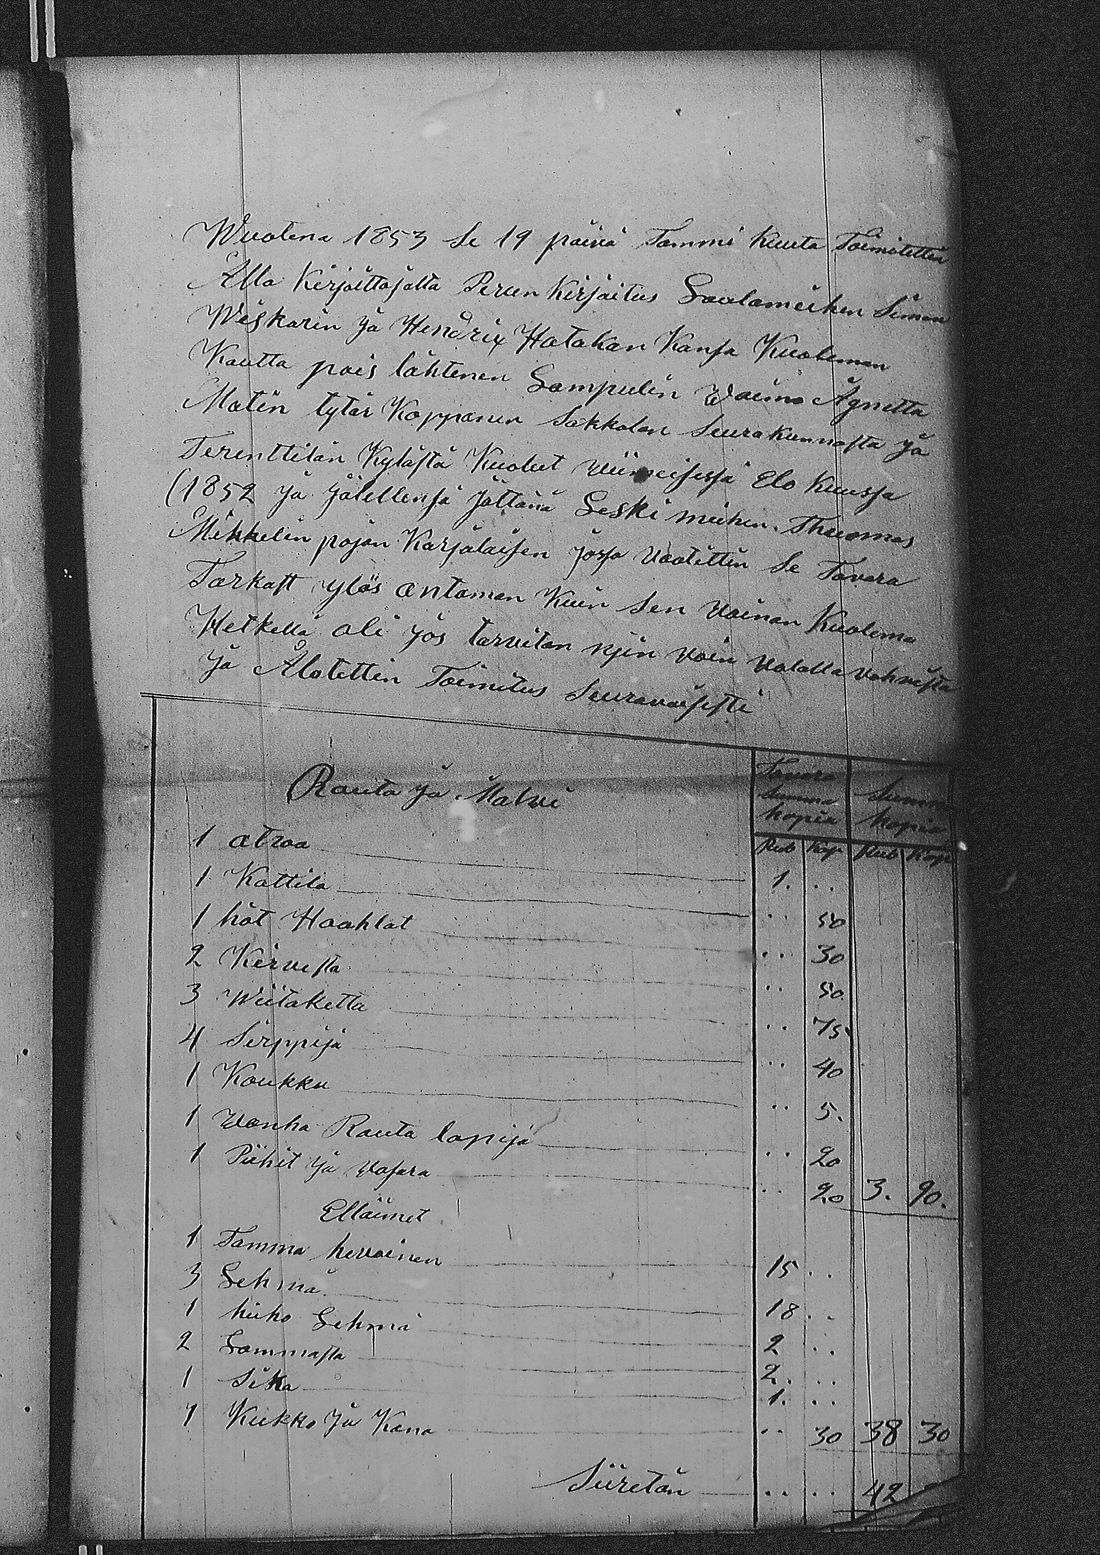 Wuotena 1853 Se 19 päivä Tammi Kuuta Toimitettin
Alla Kirjoittajalta Perun Kirjoitus Lautameihen Simon
Wiskarin ja Hendrix Hatakan Kansa Kuoleman
Kautta pois lähtenen Lampulin Vaimo Agnetta
Matin tytär Kopposen Sakkolan Seurakunnasta ja
Terenttilän Kylästä Kuolut viimeisessä Elo Kuussa
(1852 ja jälellensä Jättänä Leski meihen Thuomas
Mikkelin pojan Karjalaisen josa vaatittin Se Tavara
Tarkast ylös antaman Kuin sen vainan Kuolema
Hetkellä oli jos tarvitan njin voin valalla vahvista
ja Alotettin Toimitus Seuravaisesti
Rauta ja Malmi
Tavara Summa Kopia Summa Kopia
Rub Kop Rub Kop
1 atraa 1. ..
1 Kattila .. 50
1 hät Haahlat .. 30
2 Kirvesta .. 50
3 Wiitaketta .. 75
4 Sirppijä .. 40
1 Koukku .. 5.
1 Vanha Rauta lapija .. 20
1 Piihit ja Vasara .. 20 3. 90.
Elläimet
1 Tamma hevoinen 15 ..
3 Lehmä 18 ..
1 hieho Lehmä 2 ..
2 Lammasta 2. ..
1 Sika 1. ..
1 Kukko ja Kana .. 30 38 30
Siiretän .. .. 42